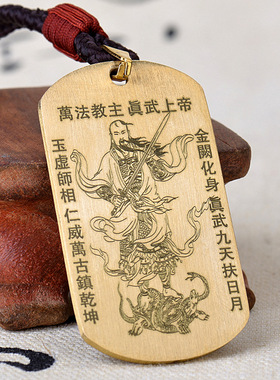 萬法教主眞武上帝
金闕化身 眞武九天扶日月
玉虛師相 仁威萬古鎮乾坤